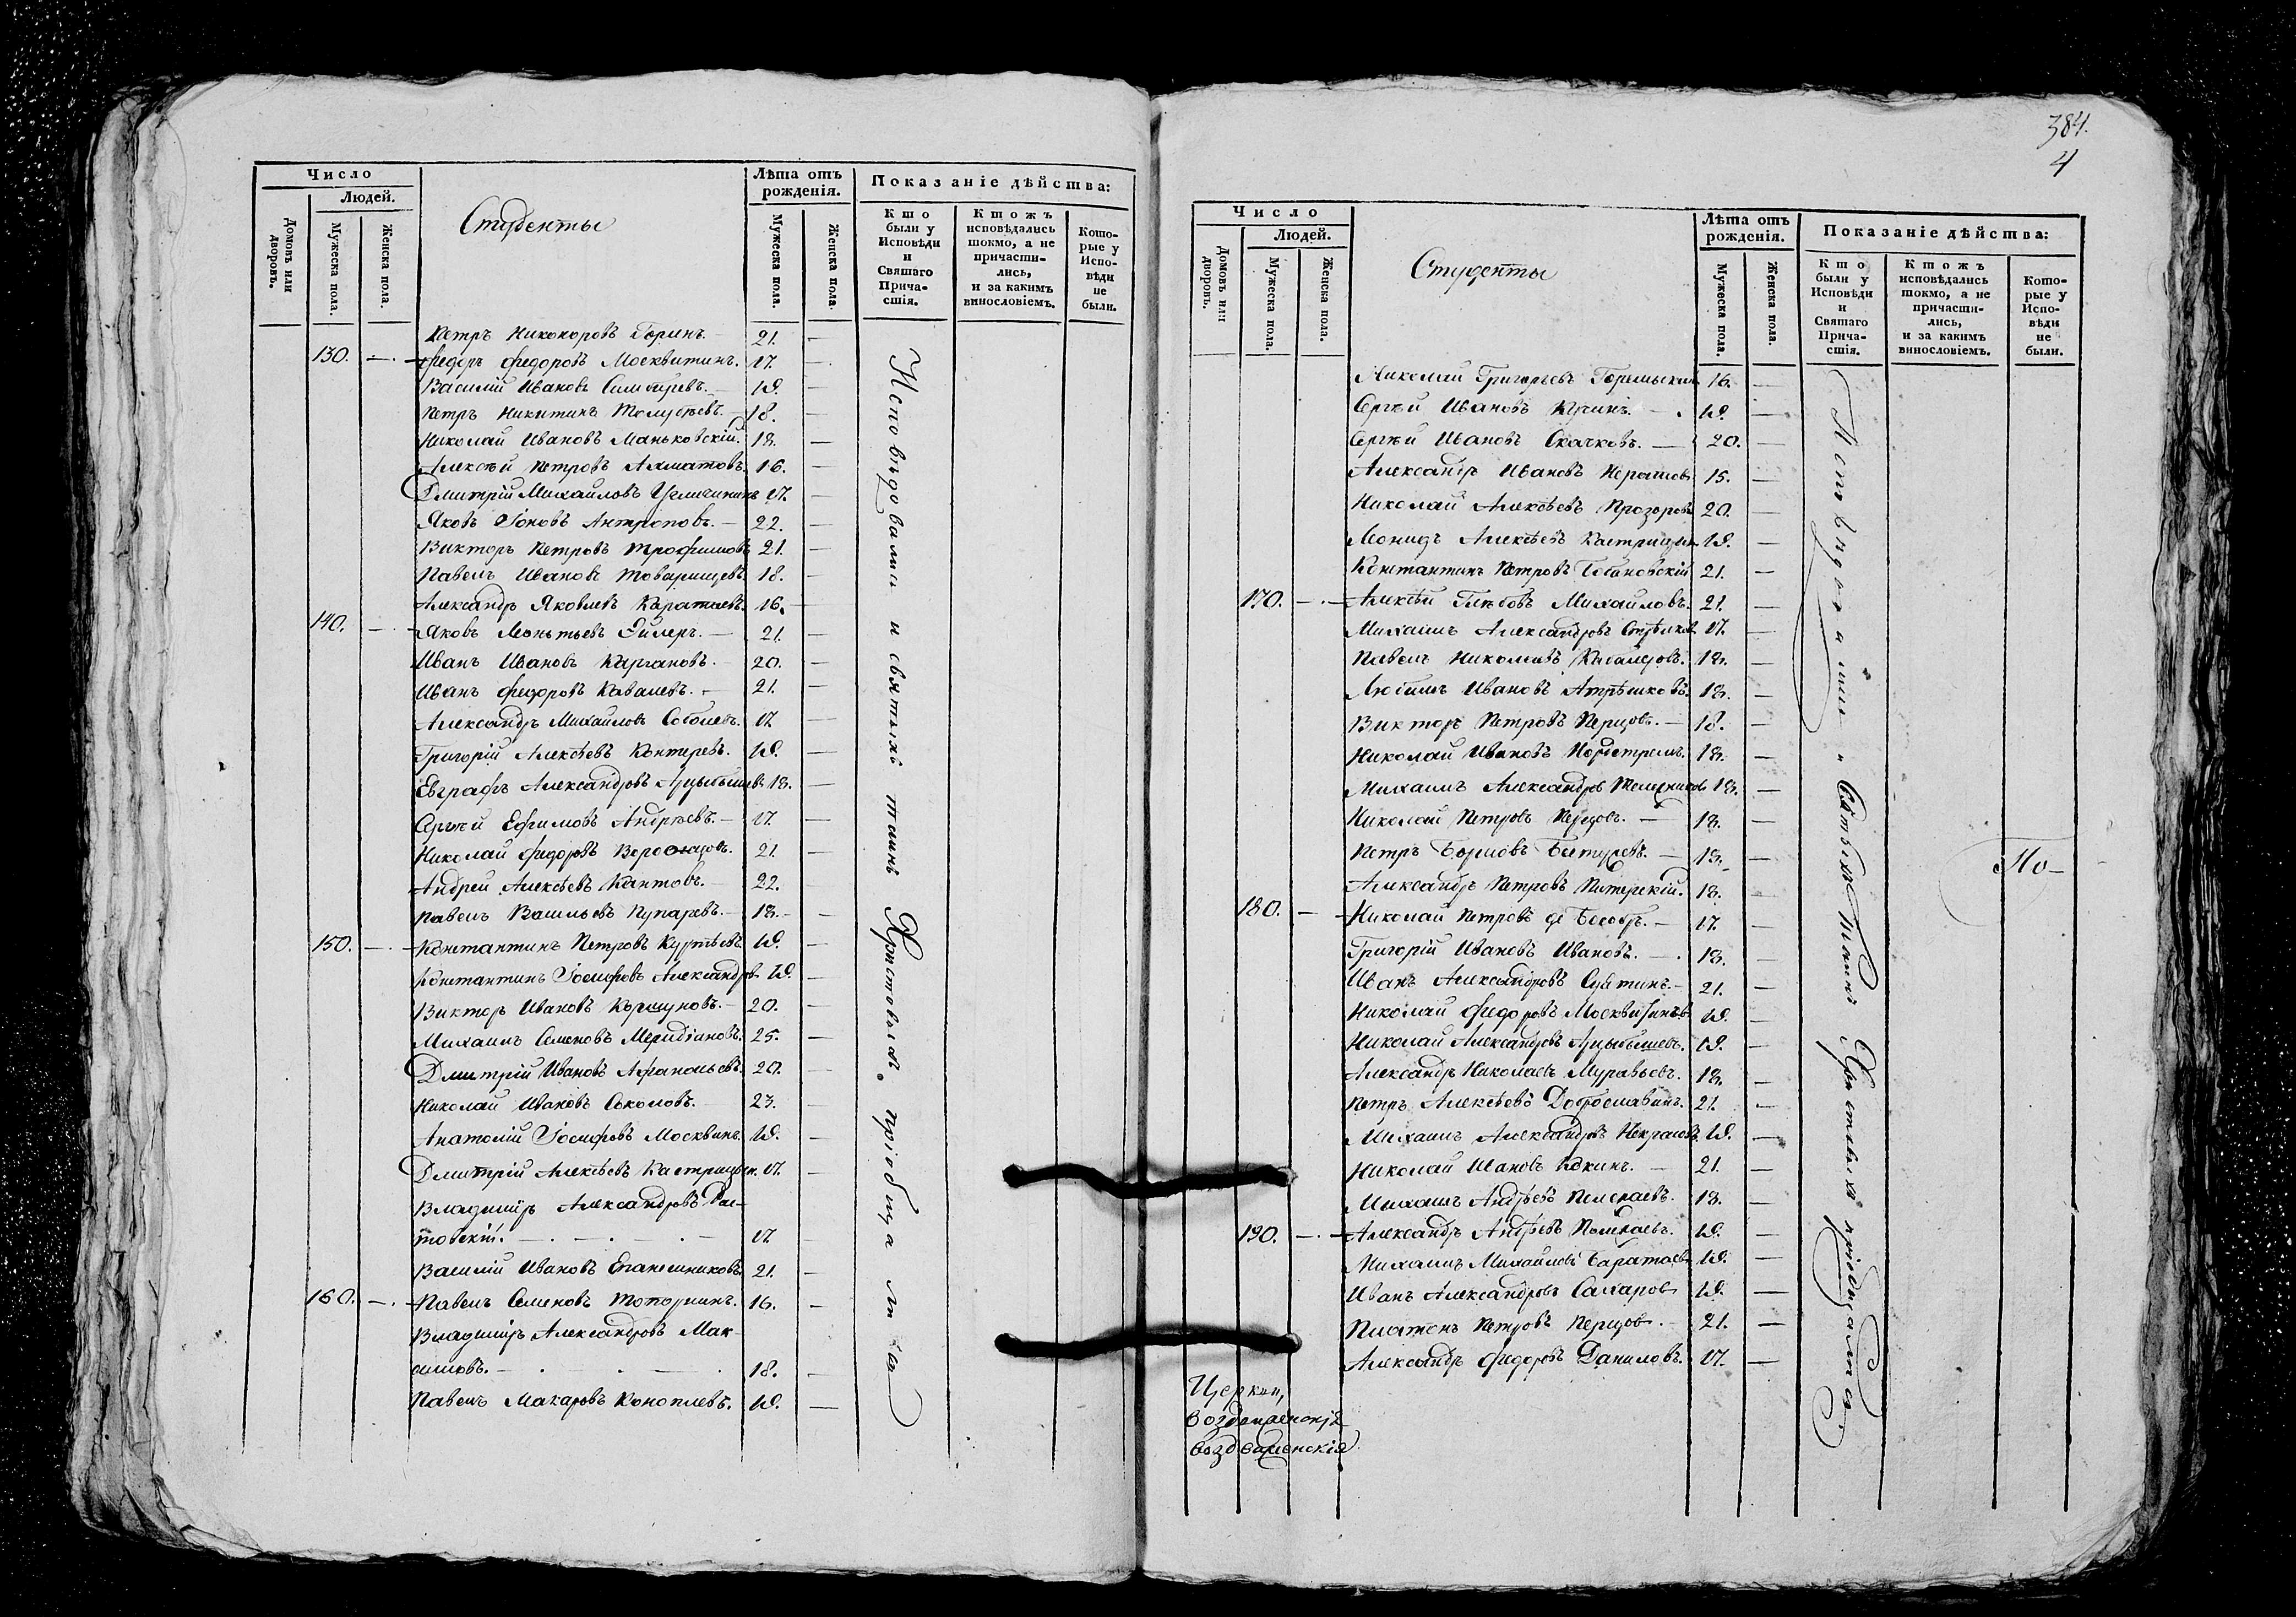 Число
Людей.
Домовъ или дворовъ.
Мужеска пола.
Женска пола.
Студенты
Лѣта отъ рожденія.
Мужеска пола.
Женска пола.
Показаніе дѣйства:
Кто были у Исповѣди и Святаго Причастія.
Ктожъ исповѣдались токмо, а не причастились, и за какимъ винословіемъ.
Которые у Исповѣди не были.
Петръ Никоноровъ Горинъ. 21. —
130. — Федоръ Федоровъ Москвитинъ. 17. —
Василій Ивановъ 19. —
Петръ Никитинъ 18. —
Николай Ивановъ Маньковскій. 18. —
Алексѣй Петровъ Ахматовъ. 16. —
Дмитрій Михайловъ Угличининъ 17. —
Яковъ Іоновъ Антроповъ. — 22. —
Викторъ Петровъ Трофимовъ 21. —
Павелъ Ивановъ Товарищевъ. 18. —
Александръ Яковлевъ Каратаевъ. 16. —
140. — Яковъ Леонтьевъ Эйлеръ. — 21. —
Иванъ Ивановъ Каргановъ. 20. —
Иванъ Федоровъ Кавалевъ. — 21. —
Александръ Михайловъ Соболевъ. 17. —
Григорій Алексѣевъ Контеревъ. 19. —
Евграфъ Александровъ Арцыбышевъ 18. —
Сергѣй Ефимовъ Андреевъ. — 17. —
Николай Федоровъ 21. —
Андрей Алексѣевъ Кантовъ. 22. —
Павелъ Васильевъ Купаревъ. — 18. —
150. — Константинъ Петровъ 19. —
Константинъ Іосифовъ Александровъ 19. —
Викторъ Ивановъ Коршуновъ. — 20. —
Михаилъ Семеновъ Меридіановъ. 25. —
Дмитрій Ивановъ Афанасьевъ. 20. —
Николай Ивановъ Соколовъ. 23. —
Анатолій Іосифовъ Москвинъ. 19. —
Дмитрій Алексѣевъ 17. —
Владиміръ Александровъ Рас-
товскій. — 17. —
Василій Ивановъ Епанешниковъ 21. —
160. — Павелъ Семеновъ Топорнинъ. 16. —
Владиміръ Александровъ Мак-
симовъ. — 18. —
Павелъ Макаровъ Коноплевъ. 19. —
Исповѣдовались и святыхъ таинъ Христовыхъ пріобщались
384.
4
Число
Людей.
Домовъ или дворовъ.
Мужеска пола.
Женска пола.
Студенты
Лѣта отъ рожденія.
Мужеска пола.
Женска пола.
Показаніе дѣйства:
Кто были у Исповѣди и Святаго Причастія.
Ктожъ исповѣдались токмо, а не причастились, и за какимъ винословіемъ.
Которые у Исповѣди не были.
Николай Григорьевъ 16. —
Сергѣй Ивановъ 19. —
Сергѣй Ивановъ Скачковъ. — 20. —
Александръ Ивановъ Нератовъ 15. —
Николай Алексѣевъ Прозоровъ 20. —
Леонидъ Алексѣевъ 19. —
Константинъ Петровъ 21. —
170. — Алексѣй Глѣбовъ Михайловъ. 21. —
Михаилъ Александровъ 17. —
Павелъ Николаевъ 18. —
Любимъ Ивановъ Атрѣшковъ. 18. —
Викторъ Петровъ Перцовъ. — 18. —
Николай Ивановъ 18. —
Михаилъ Александровъ 18. —
Николай Петровъ — 18. —
Петръ Борисовъ — 18. —
Александръ Петровъ Питерскій. 18. —
180. — Николай Петровъ — 17. —
Григорій Ивановъ Ивановъ. — 18. —
Иванъ Александровъ — 21. —
Николай Федоровъ Москвитинъ 19. —
Николай Александровъ Арцыбышевъ. 19. —
Александръ Николаевъ Муравьевъ. 18. —
Петръ Алексѣевъ 21. —
Михаилъ Александровъ Некрасовъ 19. —
Николай Ивановъ — 21. —
Михаилъ Андреевъ Пелехаевъ. 18. —
190. — Александръ Андреевъ 19. —
Михаилъ Михайловъ Баратаевъ 19. —
Иванъ Александровъ Сахаровъ 19. —
Платонъ Петровъ Перцовъ. — 21. —
Александръ Федоровъ Даниловъ. 17. —
Исповѣдовались и Святыхъ таинъ Христовыхъ пріобщались
По-
Церкви,
воздвиженскія